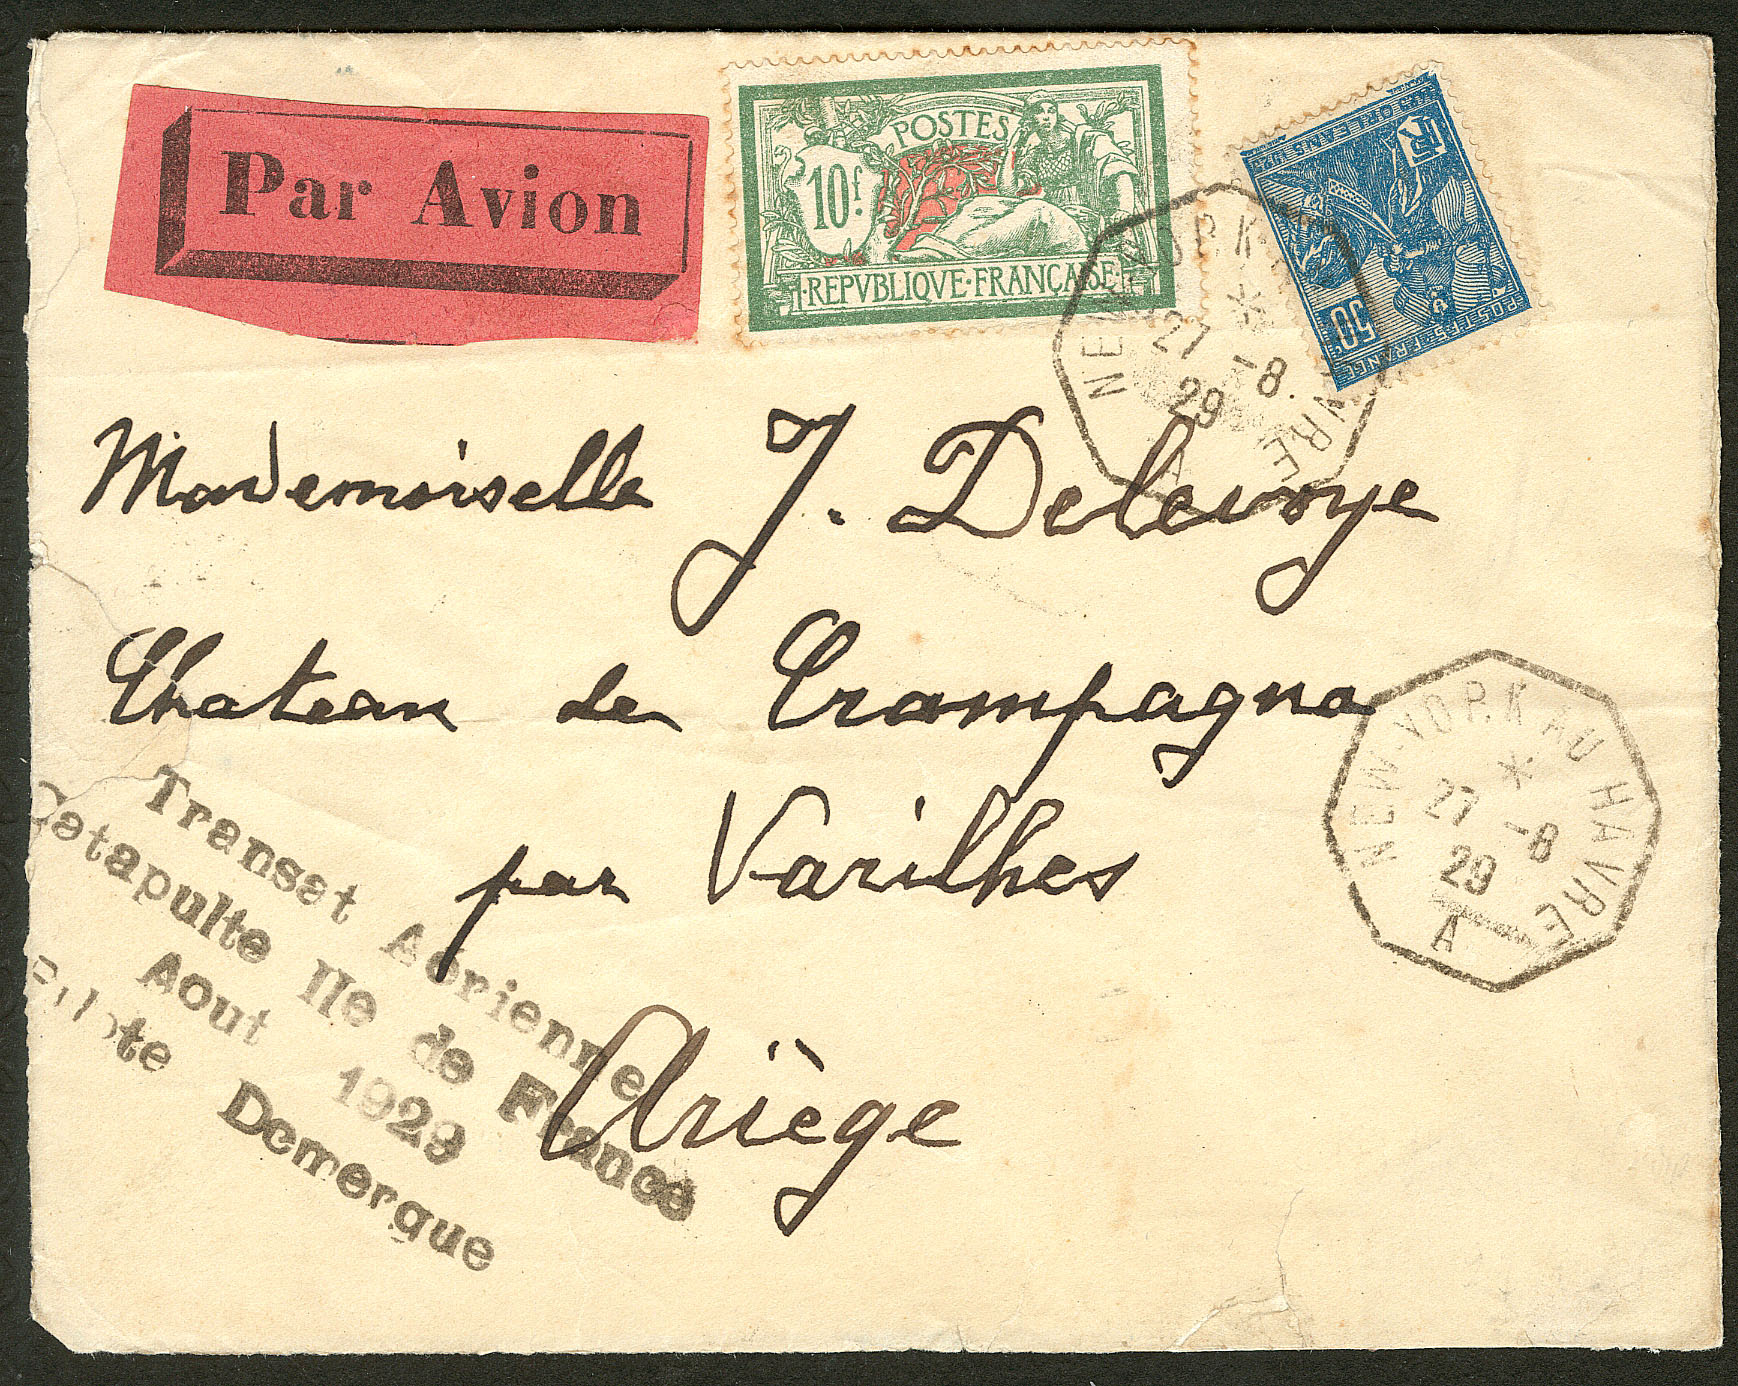 Par Avion
POSTES
10f.
REPVBLIQVE·FRANÇAISE
POSTES FRANCE
50c.
NEW-YORK AU HAVRE
27 -8
29
A
Mademoiselle J. Delevoye
Chateau de Crampagna
par Varilhes
Ariège
NEW-YORK AU HAVRE
27 -8
29
A
Transat Aérienne
Catapulte Ile de France
Aout 1929
Pilote Demerque